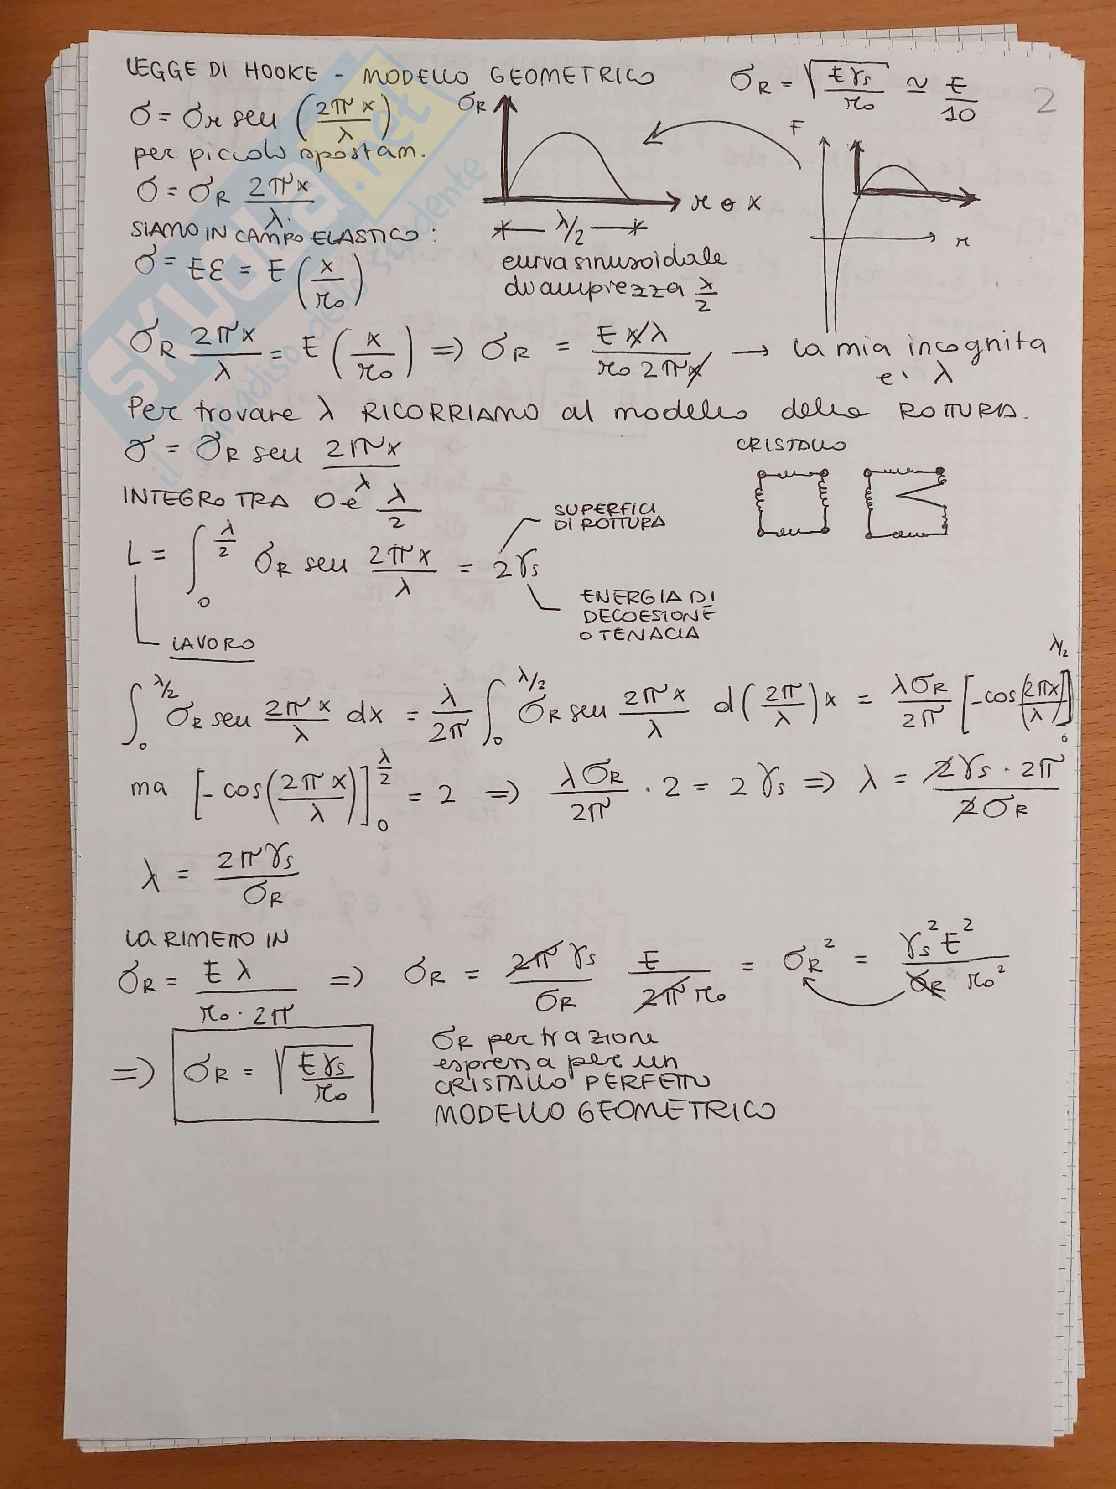 LEGGE DI HOOKE - MODELLO GEOMETRICO
σR = √(Eγs/r₀) ≃ E/10
2
σ = σr sen (2πx/λ)
per piccolo spostam.
σ = σR 2πx/λ
σR
r o x
λ/2
F
r
curva sinusoidale
di ampiezza λ/2
SIAMO IN CAMPO ELASTICO:
σ = Eε = E (x/r₀)
σR 2πx/λ = E (x/r₀) => σR = E x λ / r₀ 2π x → la mia incognita
e' λ
Per trovare λ RICORRIAMO al modello della ROTTURA.
σ = σR sen 2πx/λ
CRISTALLO
INTEGRO TRA 0 e λ/2
SUPERFICI
DI ROTTURA
L = ∫₀^(λ/2) σR sen 2πx/λ = 2γs
ENERGIA DI
DECOESIONE
O TENACIA
LAVORO
∫₀^(λ/2) σR sen 2πx/λ dx = λ/2π ∫₀^(λ/2) σR sen 2πx/λ d(2π/λ)x = λσR/2π [-cos(2πx/λ)]₀^(λ/2)
ma [-cos(2πx/λ)]₀^(λ/2) = 2 => λσR/2π · 2 = 2γs => λ = 2γs · 2π / 2σR
λ = 2πγs/σR
LA RIMETTO IN
σR = E λ / r₀ · 2π => σR = 2πγs/σR E/2πr₀ = σR² = γs² E² / σR r₀²
=> σR = √(Eγs/r₀)
σR per trazione
espressa per un
CRISTALLO PERFETTO
MODELLO GEOMETRICO
SKUOLA.net